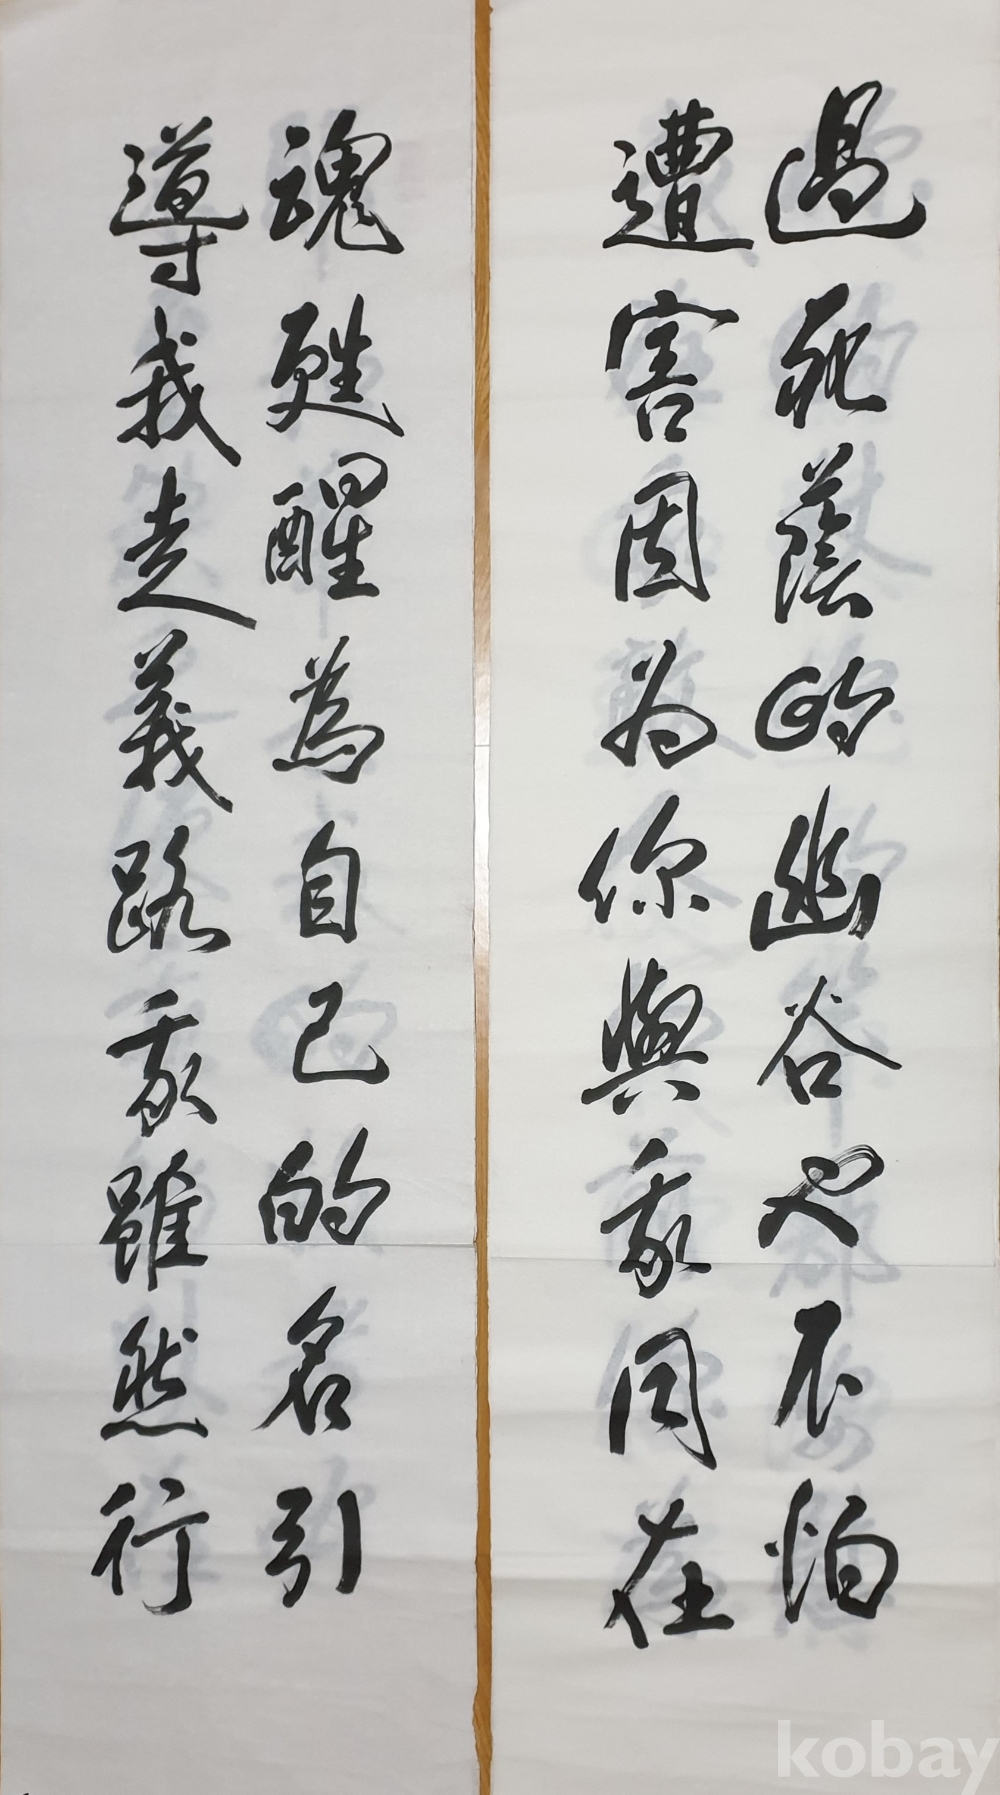 魂甦醒為自己的名引
導我走義路我雖然行
過死蔭的幽谷也不怕
遭害因为你與我同在
kobay